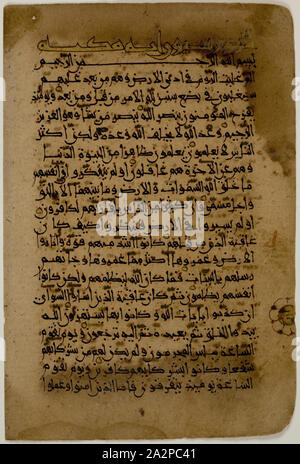 مكيه
بسم الله الرحمن الرحيم
الم غلبت الروم في ادنى الارض وهم من بعد غلبهم
سيغلبون في بضع سنين لله الامر من قبل ومن بعد ويومئذ
يفرح المؤمنون بنصر الله ينصر من يشاء وهو العزيز
الرحيم وعد الله لا يخلف الله وعده ولكن اكثر
الناس لا يعلمون يعلمون ظاهرا من الحيوة الدنيا
وهم عن الاخرة هم غافلون اولم يتفكروا في انفسهم
ما خلق الله السموات والارض وما بينهما الا بالحق
واجل مسمى وان كثيرا من الناس بلقاء ربهم لكافرون
اولم يسيروا في الارض فينظروا كيف كان
عاقبة الذين من قبلهم كانوا اشد منهم قوة واثاروا
الارض وعمروها اكثر مما عمروها وجاءتهم
رسلهم بالبينات فما كان الله ليظلمهم ولكن كانوا
انفسهم يظلمون ثم كان عاقبة الذين اساؤا السواى
ان كذبوا بايات الله وكانوا بها يستهزءون الله
يبدؤا الخلق ثم يعيده ثم اليه ترجعون ويوم تقوم
الساعة يبلس المجرمون ولم يكن لهم من شركائهم
شفعاء وكانوا بشركائهم كافرين ويوم تقوم
الساعة يومئذ يتفرقون فاما الذين امنوا وعملوا
alamy
2A2PC41